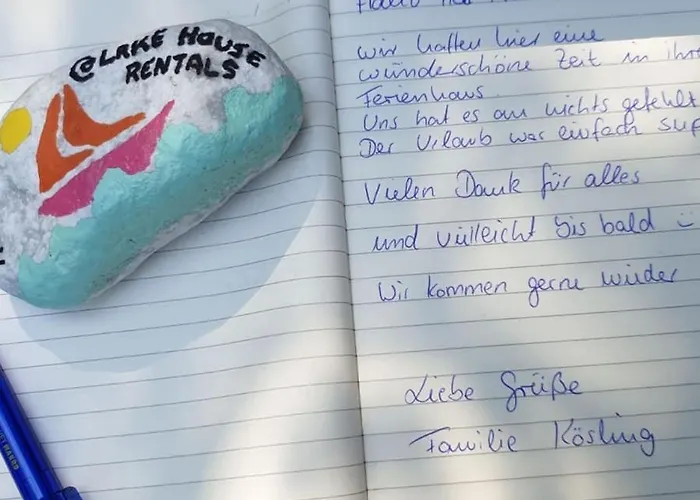 @LAKE HOUSE
RENTALS
wir hatten hier eine
wünderschöne Zeit in ihre
Ferienhaus.
Uns hat es an nichts gefehlt
Der Urlaub war einfach sup
Vielen Dank für alles
und vielleicht bis bald
Wir kommen gerne wieder
Liebe Grüße
Familie Kösling